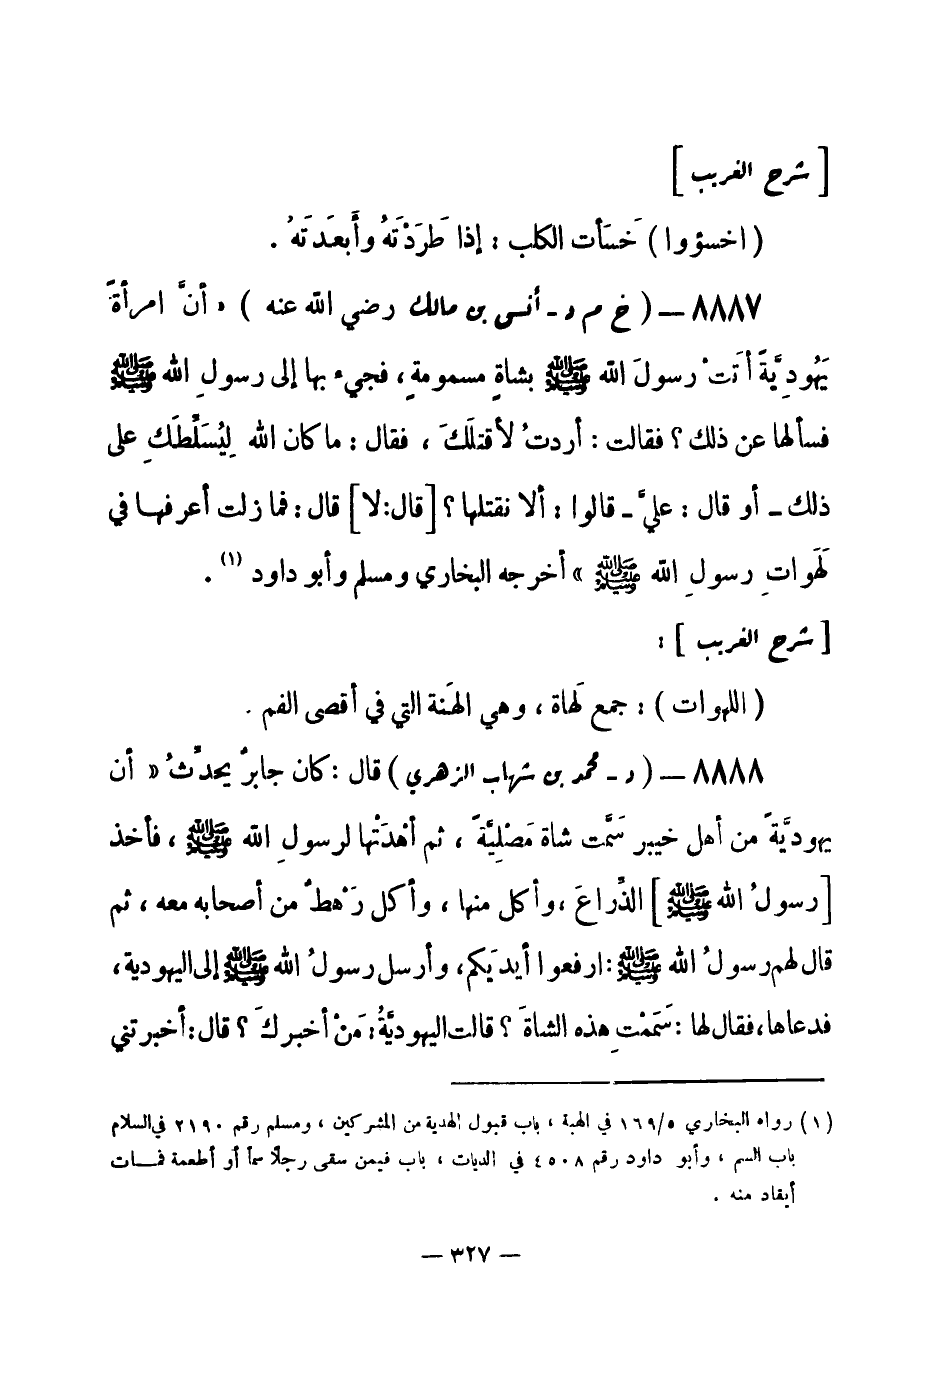 [ شرح الغريب ]
( اخسؤوا ) خَسَأت الكلب : إذا طَرَدْتَهُ وأَبعَدتَهُ .
٨٨٨٧ – ( خ م د - أنسى بن مالك رضي الله عنه ) « أنَّ امرأةً
يَهُودِيَّةً أتَتْ رسولَ الله ﷺ بشاةٍ مسمومةٍ ، فجيء بها إلى رسولِ الله ﷺ
فسألها عن ذلك ؟ فقالت : أردتُ لأقتلَكَ ، فقال : ما كان الله لِيُسَلِّطَكِ على
ذلك - أو قال : عليَّ - قالوا : ألا نقتلها ؟ [قال:لا] قال : فما زلت أعرفهـا في
لَهَواتِ رسولِ الله ﷺ » أخرجه البخاري ومسلم وأبو داود (١) .
[ شرح الغريب ] :
( اللهوات ) : جمع لَهاة ، وهي الهَنة التي في أقصى الفم .
٨٨٨٨ – ( د - محمد بن شهاب الزهري ) قال : كان جابرٌ يحدِّثُ « أن
يهوديَّةً من أهل خيبر سَمَّت شاة مَصْلِيَّةً ، ثم أهْدَتْها لرسولِ الله ﷺ ، فأخذ
[ رسولُ الله ﷺ ] الذِّراعَ ، وأكل منها ، وأكل رَهْطٌ من أصحابه معه ، ثم
قال لهم رسولُ الله ﷺ : ارفعوا أيديَكم ، وأرسل رسولُ الله ﷺ إلى اليهودية ،
فدعاها ، فقال لها : سَمَمْتِ هذه الشاةَ ؟ قالت اليهوديَّةُ : مَنْ أخبركَ ؟ قال : أخبرتني
(١) رواه البخاري ١٦٩/٥ في الهبة ، باب قبول الهدية من المشركين ، ومسلم رقم ٢١٩٠ في السلام
باب السم ، وأبو داود رقم ٤٥٠٨ في الديات ، باب فيمن سقى رجلاً سماً أو أطعمة فمـات
أيقاد منه .
– ٣٢٧ –